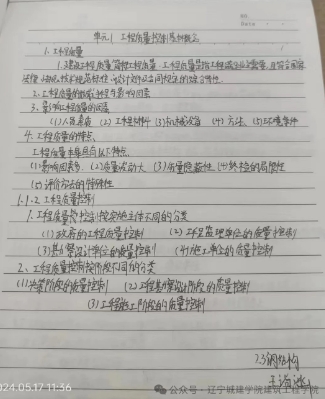 单元1 工程质量控制基本概念
1.工程质量
1.建设工程质量简称工程质量,工程质量是指工程满足业主需要,且符合国家
法律、法规、技术规范标准、设计文件及合同规定的综合特性。
2.工程质量的形成过程与影响因素
3.影响工程质量的因素
(1)人员素质 (2)工程材料 (3)机械设备 (4)方法 (5)环境条件
4.工程质量的特点
工程质量本身具有以下特点
(1)影响因素多 (2)质量波动大 (3)质量隐蔽性 (4)终检的局限性
(5)评价方法的特殊性
1.1.2工程质量控制
1.工程质量控制按实施主体不同的分类
(1)政府的工程质量控制 (2)工程监理单位的质量控制
(3)勘察设计单位的质量控制 (4)施工单位的质量控制
2、工程质量控制按阶段不同的分类
(1)决策阶段的质量控制 (2)工程勘察设计阶段的质量控制
(3)工程施工阶段的质量控制
23钢结构
2024.05.17 11:36
公众号·辽宁城建学院建筑工程学院